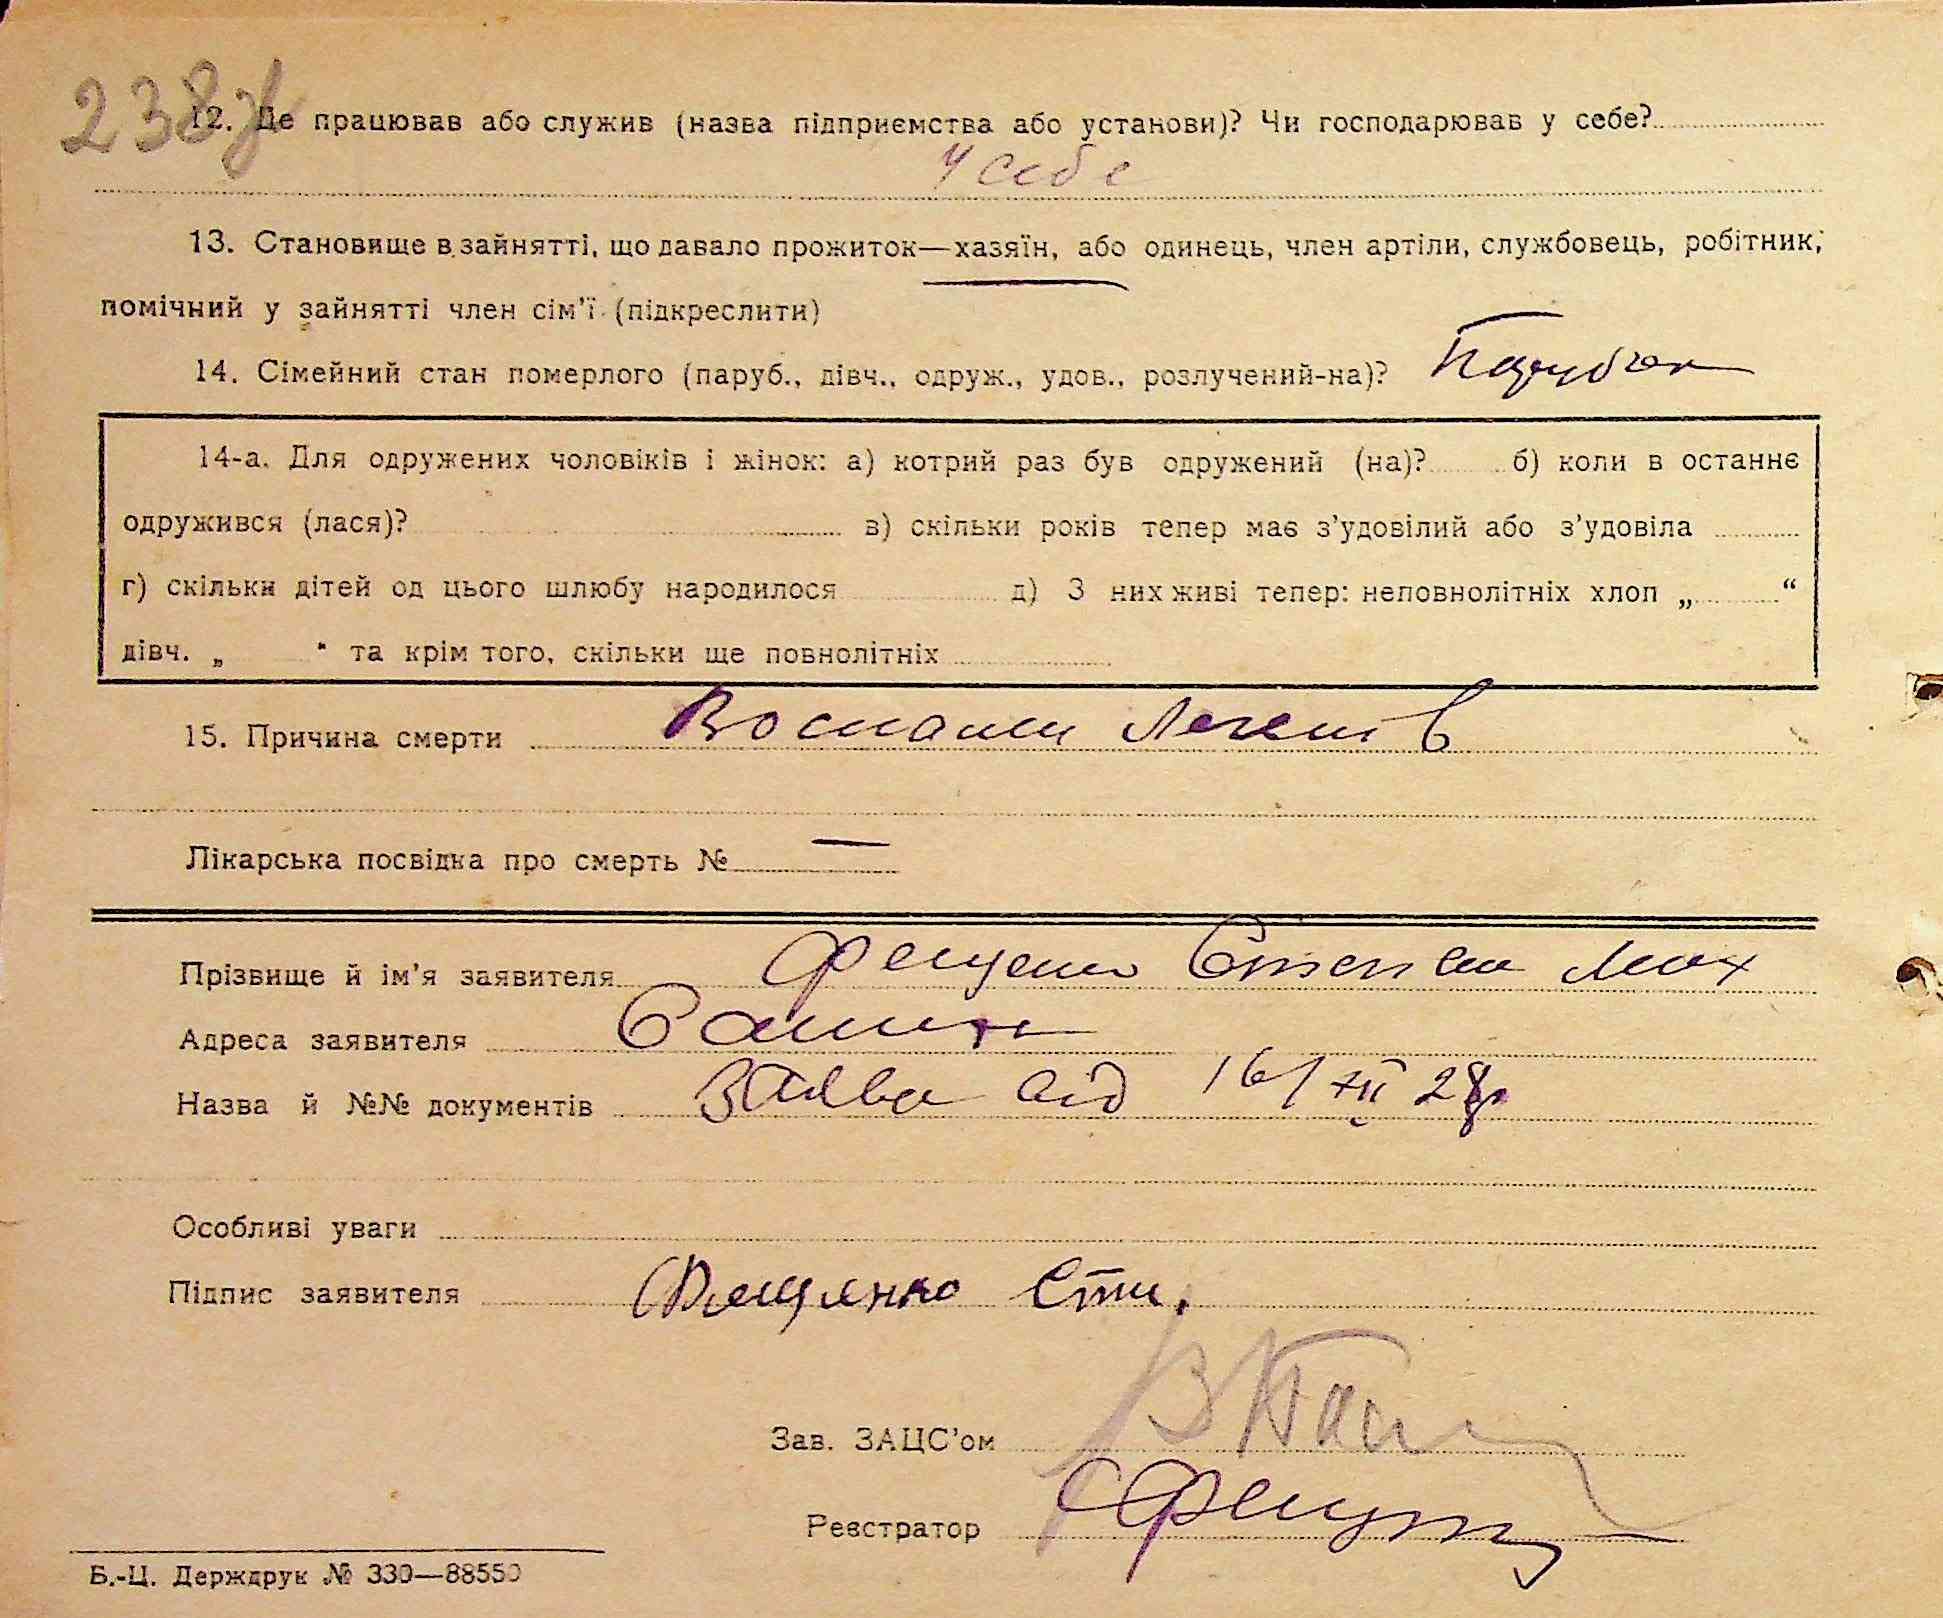 238
12. Де працював або служив (назва підприємства або установи)? Чи господарював у себе?
у себе
13. Становище в зайнятті, що давало прожиток—хазяїн, або одинець, член артіли, службовець, робітник,
помічний у зайнятті член сім'ї (підкреслити)
14. Сімейний стан померлого (паруб., дівч., одруж., удов., розлучений-на)? Парубок
14-а. Для одружених чоловіків і жінок: а) котрий раз був одружений (на)? б) коли в останнє
одружився (лася)? в) скільки років тепер має з'удовілий або з'удовіла
г) скільки дітей од цього шлюбу народилося д) З них живі тепер: неповнолітніх хлоп „ “
дівч. „ “ та крім того, скільки ще повнолітніх
15. Причина смерти Воспалии Легенів
Лікарська посвідка про смерть № —
Прізвище й ім'я заявителя Фещенко Степан
Адреса заявителя
Назва й №№ документів Заява від 16/XII 28р.
Особливі уваги
Підпис заявителя Фещенко Сти.
Зав. ЗАЦС'ом
Реєстратор
Б.-Ц. Держдрук № 330—88550